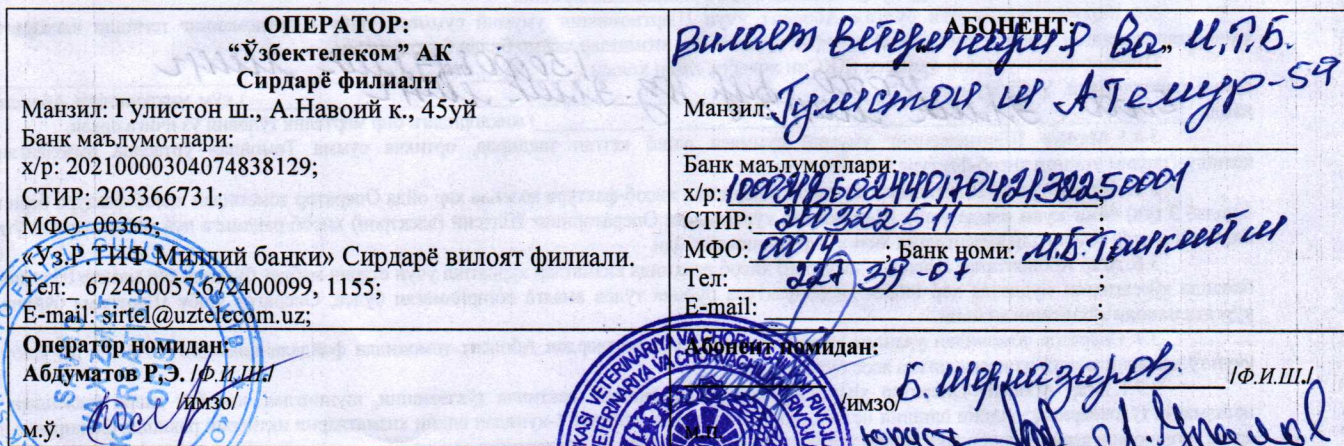 ОПЕРАТОР:
“Ўзбектелеком” АК
Сирдарё филиали
Манзил: Гулистон ш., А.Навоий к., 45уй
Банк маълумотлари:
х/р: 20210000304074838129;
СТИР: 203366731;
МФО: 00363;
«Ўз.Р.ТИФ Миллий банки» Сирдарё вилоят филиали.
Тел: 672400057,672400099, 1155;
E-mail: sirtel@uztelecom.uz;
Оператор номидан:
Абдуматов Р,Э. /Ф.И.Ш./
/имзо/
м.ў.
АБОНЕНТ:
Вилоят Ветеринария Ва, И.Т.Б.
Манзил: Гулистон ш А Темур-59
Банк маълумотлари:
х/р:
СТИР: 203322511;
МФО: 0014; Банк номи: М.Б. Тошкент ш
Тел: 227 39-07;
E-mail: ;
Абонент номидан:
Б Шерназаров. /Ф.И.Ш./
/имзо/
м.п
Юрист
VETERINARIYA VA CHORV